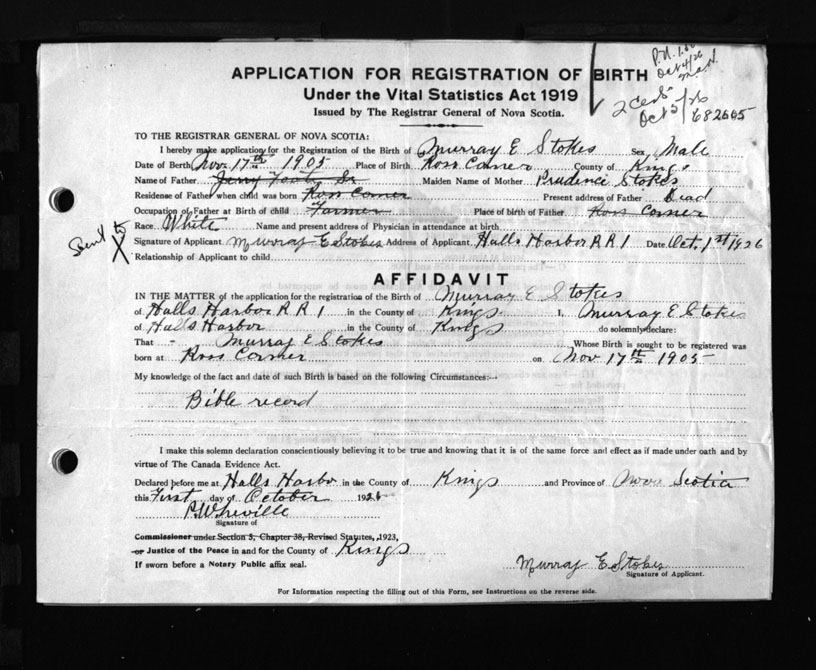 P.N. 1.00
Oct 4/26
2 Certs
Oct 5/26
682605
APPLICATION FOR REGISTRATION OF BIRTH
Under the Vital Statistics Act 1919
Issued by The Registrar General of Nova Scotia.
TO THE REGISTRAR GENERAL OF NOVA SCOTIA:
I hereby make application for the Registration of the Birth of Murray E Stokes Sex Male
Date of Birth Nov 17th 1905 Place of Birth Ross Corner County of Kings
Name of Father Jerry Foote Sr Maiden Name of Mother Prudence Stokes
Residence of Father when child was born Ross Corner Present address of Father Dead
Occupation of Father at Birth of child Farmer Place of birth of Father Ross Corner
Race White Name and present address of Physician in attendance at birth
Sent to X
Signature of Applicant Murray E Stokes Address of Applicant Halls Harbor R R 1 Date Oct. 1st 1926
Relationship of Applicant to child
AFFIDAVIT
IN THE MATTER of the application for the registration of the Birth of Murray E Stokes
of Halls Harbor R R 1 in the County of Kings I, Murray E Stokes
of Halls Harbor in the County of Kings do solemnly declare:
That - Murray E Stokes Whose Birth is sought to be registered was
born at Ross Corner on Nov 17th 1905
My knowledge of the fact and date of such Birth is based on the following Circumstances:—
Bible record
I make this solemn declaration conscientiously believing it to be true and knowing that it is of the same force and effect as if made under oath and by
virtue of The Canada Evidence Act.
Declared before me at Halls Harbor in the County of Kings and Province of Nova Scotia
this First day of October 1926
Signature of
Commissioner under Section 5, Chapter 38, Revised Statutes, 1923,
or Justice of the Peace in and for the County of Kings
If sworn before a Notary Public affix seal.
Murray E Stokes
Signature of Applicant.
For Information respecting the filling out of this Form, see Instructions on the reverse side.